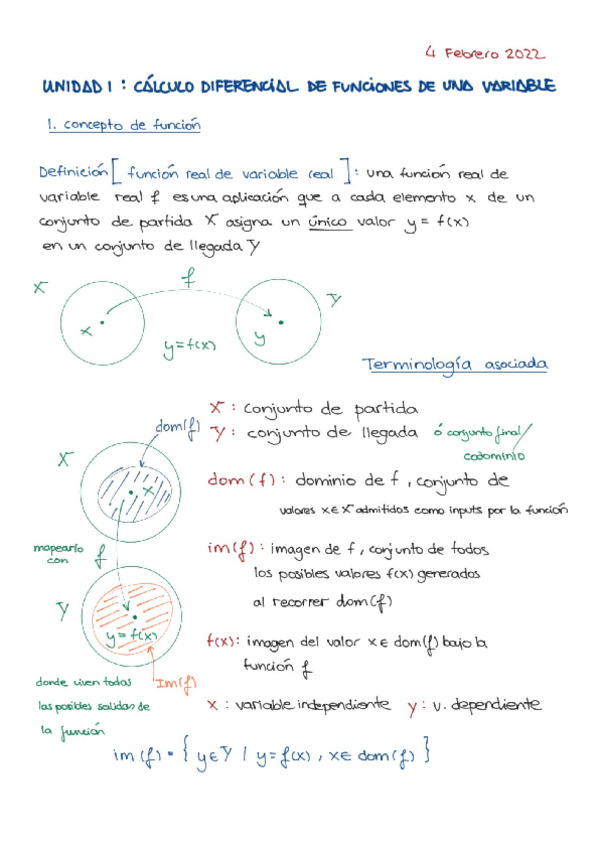 4 Febrero 2022
UNIDAD 1 : CÁLCULO DIFERENCIAL DE FUNCIONES DE UNA VARIABLE
1. concepto de función
Definición [ función real de variable real ] : una función real de
variable real f es una aplicación que a cada elemento x de un
conjunto de partida X asigna un único valor y = f(x)
en un conjunto de llegada Y
X
f
Y
x
y
y=f(x)
Terminología asociada
X : conjunto de partida
dom(f)
Y : conjunto de llegada ó conjunto final/
codominio
X
x
dom (f) : dominio de f , conjunto de
valores x∈X admitidos como inputs por la función
mapearlo
con
f
im(f) : imagen de f , conjunto de todos
los posibles valores f(x) generados
al recorrer dom(f)
Y
y=f(x)
f(x): imagen del valor x∈dom(f) bajo la
función f
donde viven todas
las posibles salidas de
la función
Im(f)
x : variable independiente y : v. dependiente
im (f) = { y∈Y / y=f(x) , x∈ dom(f) }